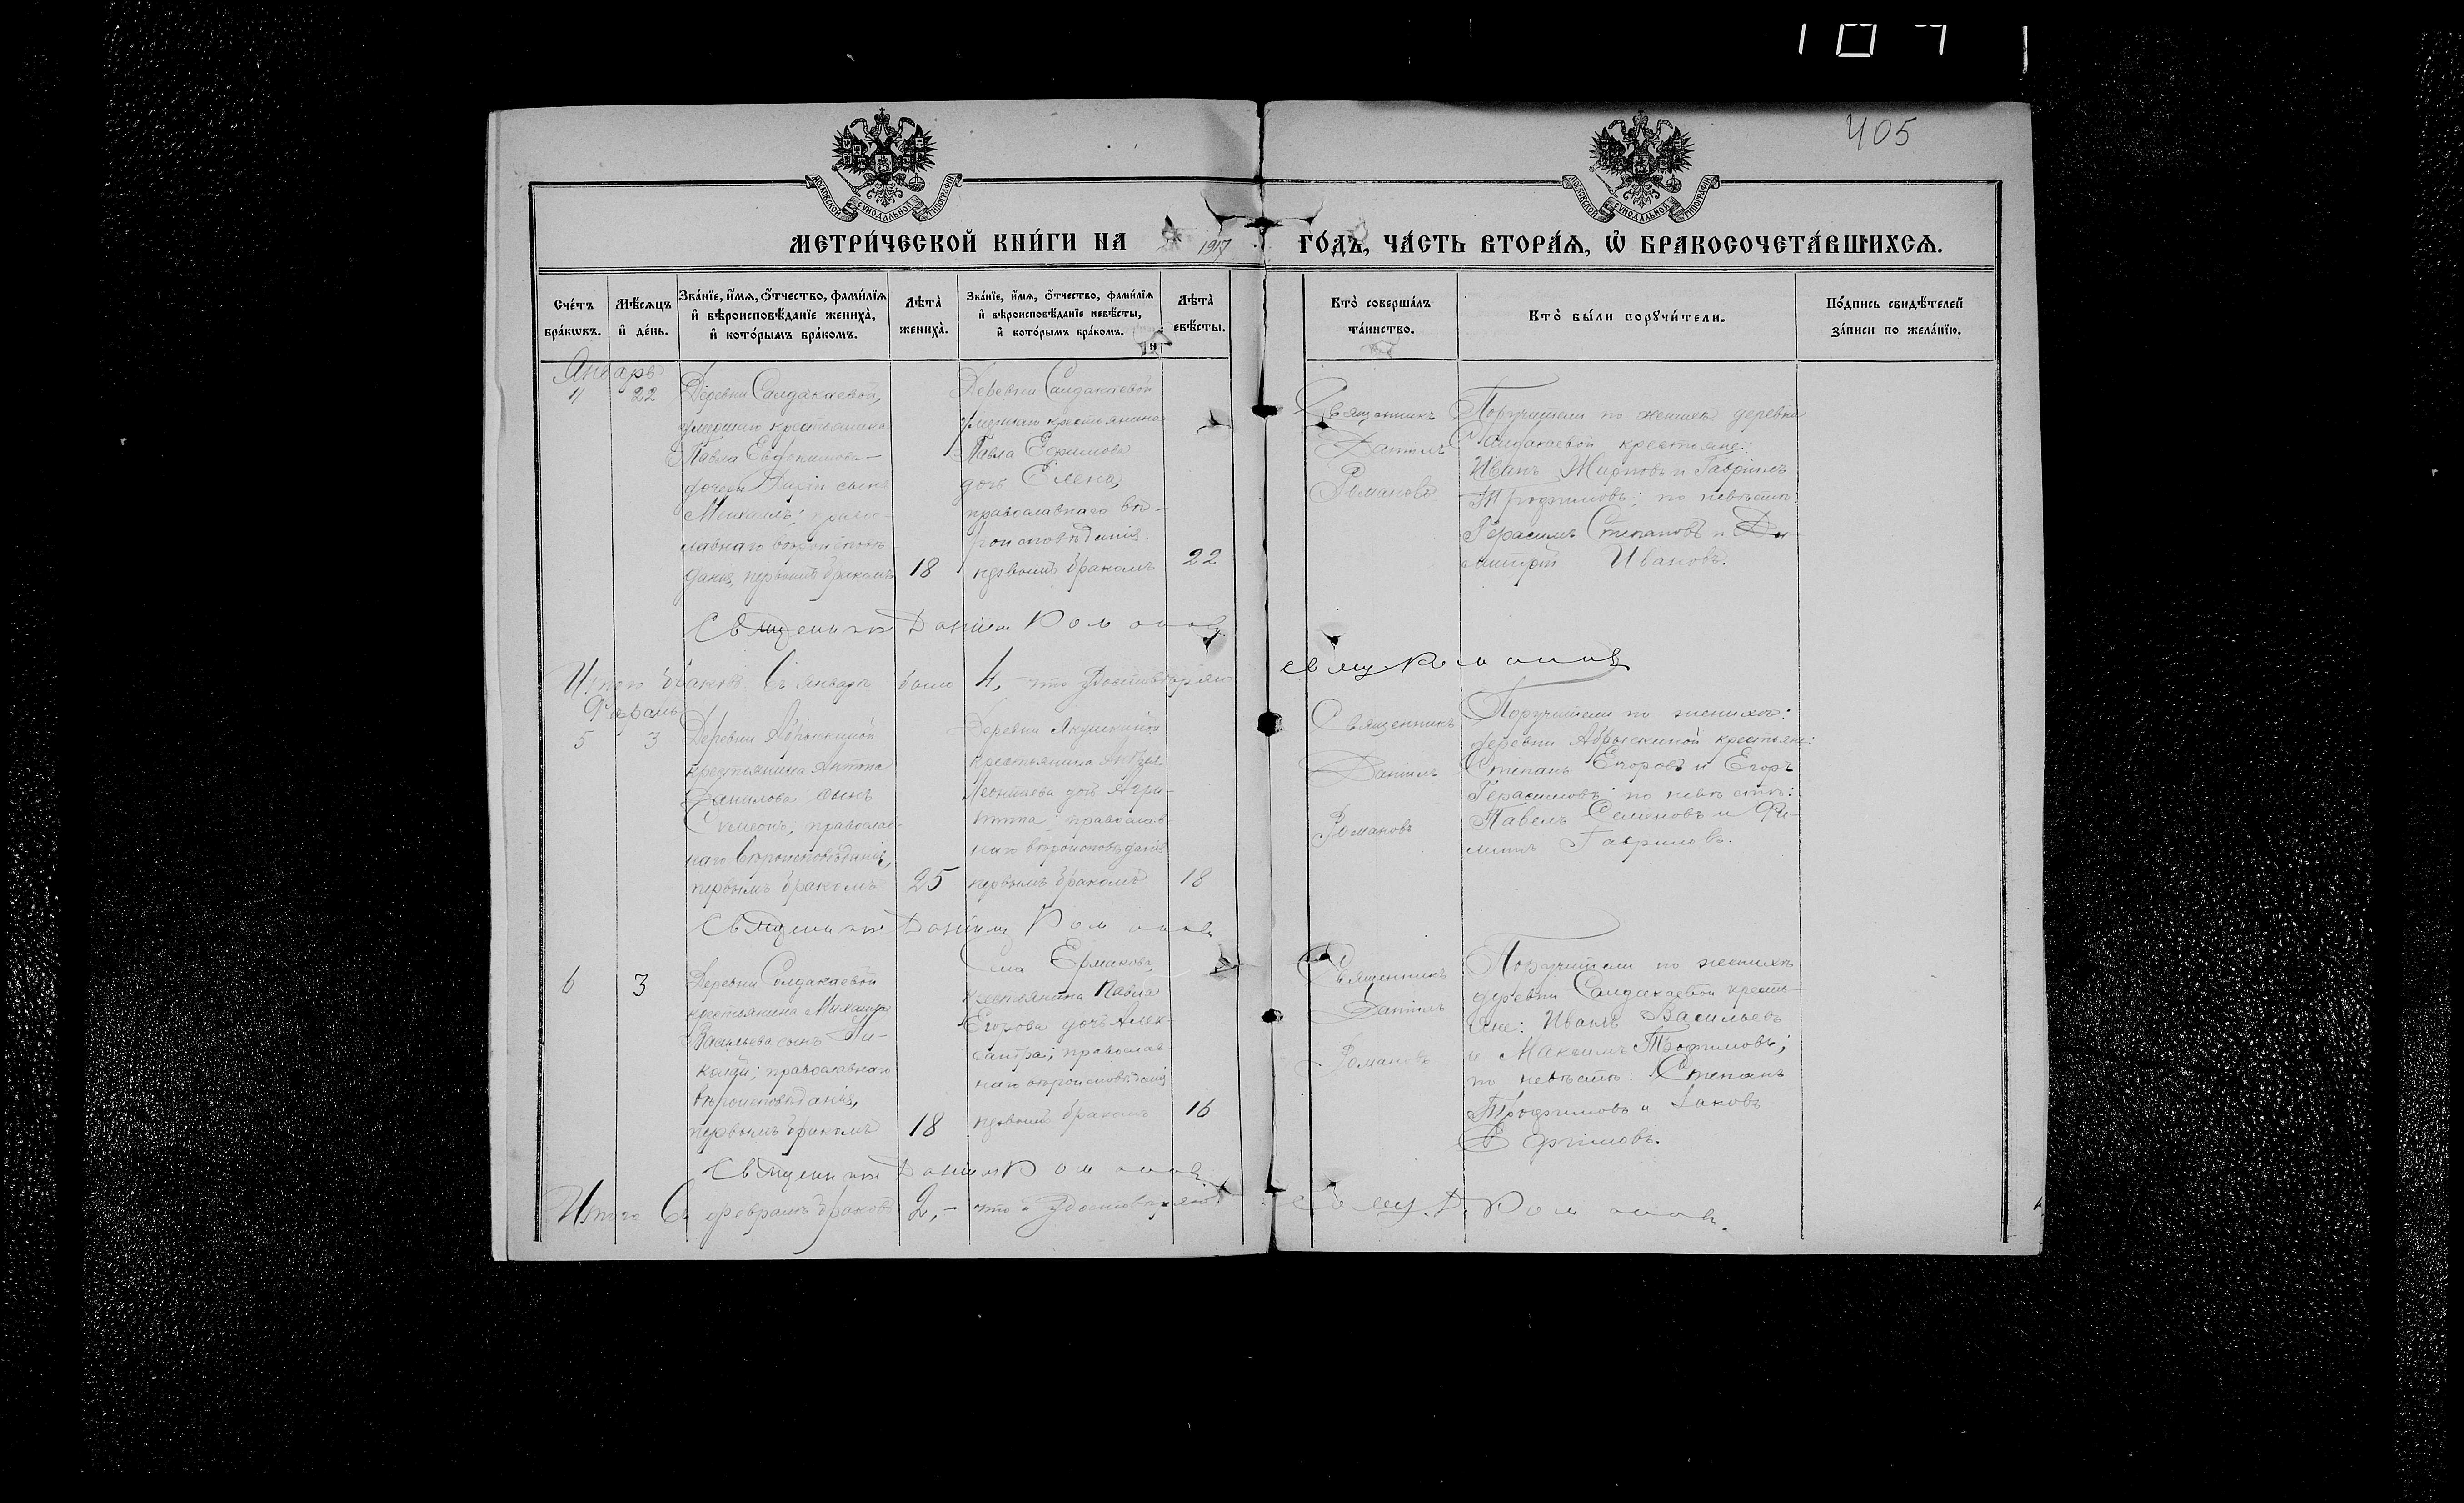 405
МОСКОВСКОЙ СѴНОДАЛЬНОЙ ТИПОГРАФІИ
МОСКОВСКОЙ СѴНОДАЛЬНОЙ ТИПОГРАФІИ
МЕТРИ́ЧЕСКОЙ КНИ́ГИ НА 1917 ГО́ДЪ, ЧА́СТЬ ВТОРА́Ѧ, Ѽ БРАКОСОЧЕТА́ВШИХСѦ.
Сче́тъ бра́кѡвъ.
Мѣ́сѧцъ и҆ де́нь.
Зва́нїе, и҆́мѧ, ѻ҆́тчество, фами́лїѧ
и҆ вѣроисповѣ́данїе жениха̀,
и҆ кото́рымъ бра́комъ.
Лѣ́та̀ жениха̀.
Зва́нїе, и҆́мѧ, ѻ҆́тчество, фами́лїѧ
и҆ вѣроисповѣ́данїе невѣ́сты,
и҆ кото́рымъ бра́комъ.
Лѣ́та̀ евѣ́сты.
Кто̀ соверша́лъ
та́инство.
Кто̀ бы́ли порꙋчи́тели.
По́дпись свидѣ́телей
за́писи по жела́нїю.
Январь
4 22
Деревни Салдакаевой,
умершаго крестьянина
Павла Евдокимова
сынъ
Михаилъ; правос-
лавнаго вѣроисповѣ-
данія, первымъ бракомъ
18
Деревни Салдакаевой
умершаго крестьянина
Павла Ефимова
дочь Елена,
православнаго вѣ-
роисповѣданія.
первымъ бракомъ
22
Священникъ
Даніилъ
Романовъ
Поручители по женихѣ деревни
Салдакаевой крестьяне:
Иванъ и Гавріилъ
Трофимовъ; по невѣстѣ:
Герасимъ Степановъ и Ди-
митрій Ивановъ.
Священникъ Даніилъ Романовъ
Итого браковъ въ январѣ было 4, что удостовѣряю
свящ Романовъ
Февраль
5 3
Деревни Абрыскиной
крестьянина Антипа
Данилова сынъ
Симеонъ; православ-
наго вѣроисповѣданія,
первымъ бракомъ
25
Деревни Якушкиной
крестьянина
Леонтьева дочь Агри-
пина; православ-
наго вѣроисповѣданія
первымъ бракомъ
18
Священникъ
Даніилъ
Романовъ
Поручители по женихѣ:
деревни Абрыскиной крестьяне:
Степанъ Егоровъ и Егоръ
Герасимовъ; по невѣстѣ:
Павелъ Семеновъ и Фи-
липпъ Гавриловъ.
Священникъ Даніилъ Романовъ
6 3
Деревни Салдакаевой
крестьянина Михаила
Васильева сынъ Ни-
колай; православнаго
вѣроисповѣданія,
первымъ бракомъ
18
Села Ермаково,
крестьянина Павла
Егорова дочь Алек-
сандра; православ-
наго вѣроисповѣданія
первымъ бракомъ
16
Священникъ
Даніилъ
Романовъ
Поручители по женихѣ
деревни Салдакаевой кресть-
яне: Иванъ Васильевъ
и Максимъ Трофимовъ;
по невѣстѣ: Степанъ
Трофимовъ и Іаковъ
Ефимовъ.
Священникъ Даніилъ Романовъ
Итого въ февралѣ браковъ 2, что и удостовѣряю
Свящ. Д. Романовъ.